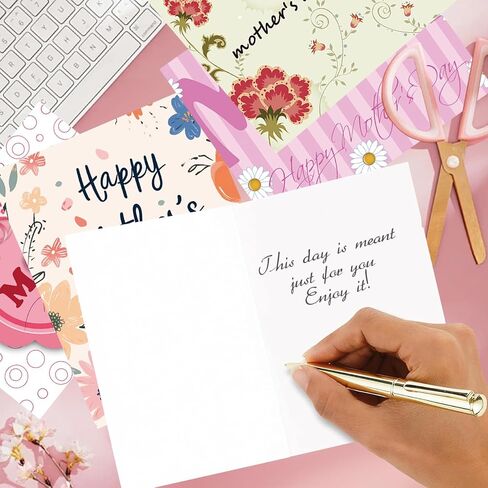 mother's
Happy Mother's Day
Happy
M
This day is meant
just for you
Enjoy it!